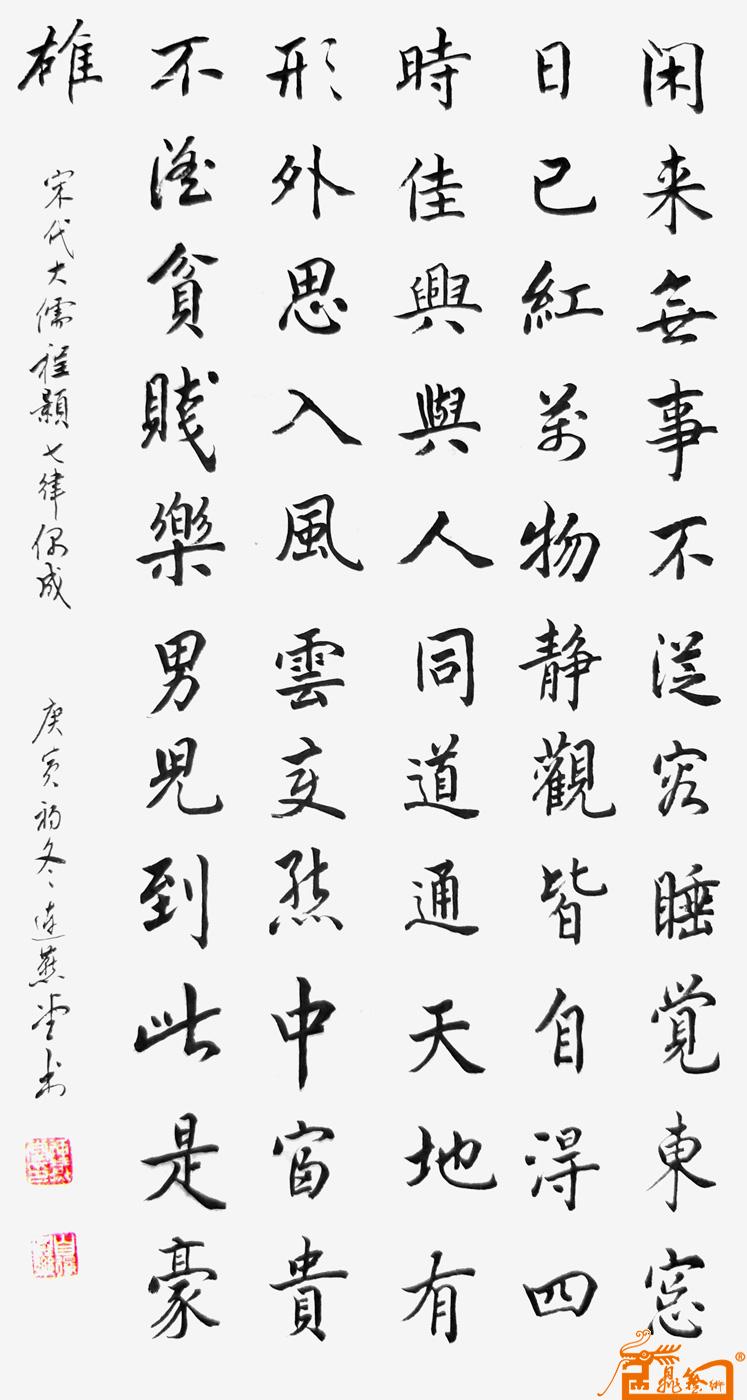 闲来無事不從容睡覚東窓
日已紅萬物静觀皆自得四
時佳興與人同道通天地有
形外思入風雲变態中富貴
不淫貧賤樂男兒到此是豪
雄
宋代大儒程顥七律偶成
庚寅初冬連燕堂书